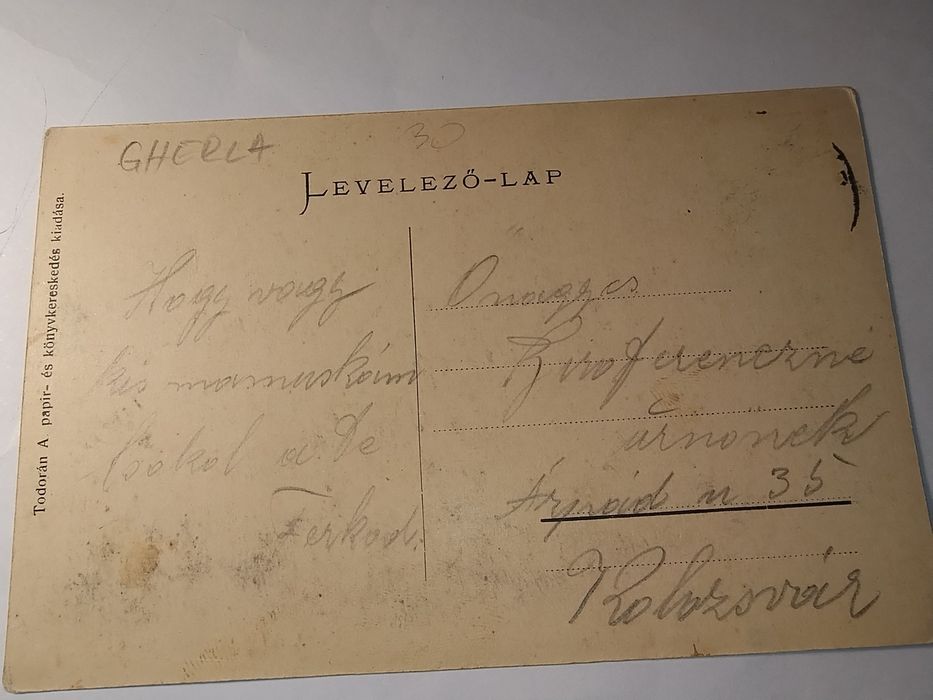 GHERLA
30
LEVELEZŐ-LAP
Todorán A. papir- és könyvkereskedés kiadása.
Hogy vagy
kis mamuskám
Csókol a Te
Ferkod.
Őnagysá
Biro Ferenczné
úrnőnek
Árpád u 35
Kolozsvár